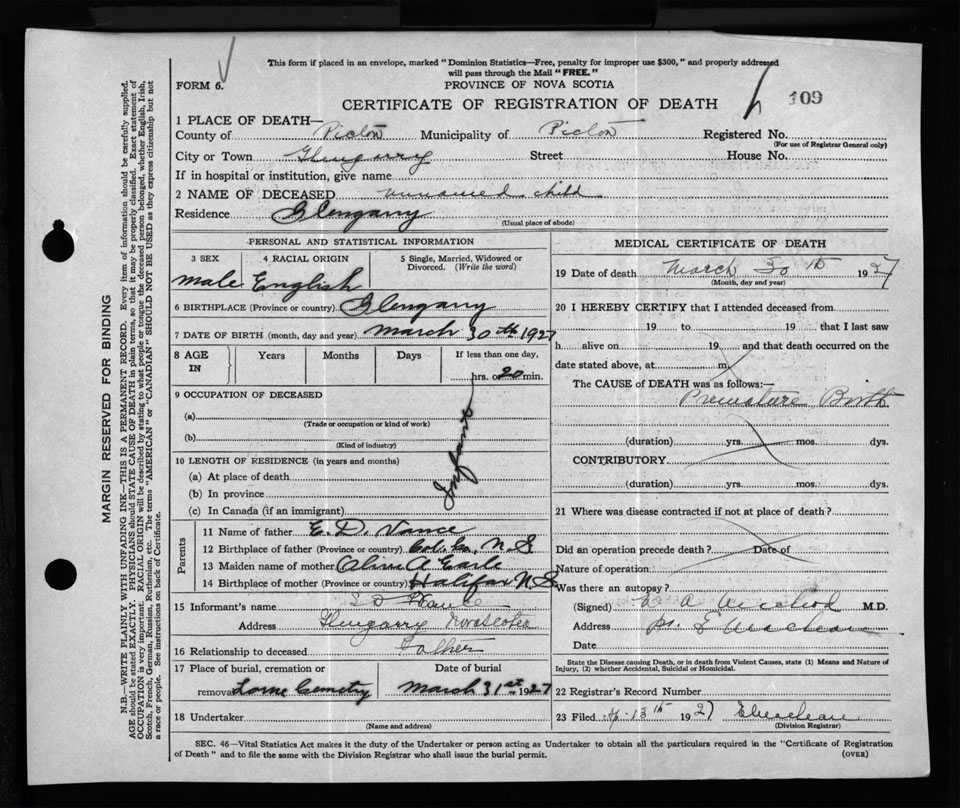 This form if placed in an envelope, marked "Dominion Statistics—Free, penalty for improper use $300," and properly addressed
will pass through the Mail "FREE."
FORM 6.
PROVINCE OF NOVA SCOTIA
CERTIFICATE OF REGISTRATION OF DEATH
109
1 PLACE OF DEATH—
County of Pictou Municipality of Pictou Registered No.
(For use of Registrar General only)
City or Town Glengarry Street House No.
If in hospital or institution, give name
2 NAME OF DECEASED unnamed child
Residence Glengarry
(Usual place of abode)
PERSONAL AND STATISTICAL INFORMATION
3 SEX
male
4 RACIAL ORIGIN
English
5 Single, Married, Widowed or
Divorced. (Write the word)
6 BIRTHPLACE (Province or country) Glengarry
7 DATE OF BIRTH (month, day and year) March 30th 1927
8 AGE
IN
Years Months Days
If less than one day,
hrs. or 20 min.
9 OCCUPATION OF DECEASED
(a)
(Trade or occupation or kind of work)
(b)
(Kind of industry)
Infant
10 LENGTH OF RESIDENCE (in years and months)
(a) At place of death
(b) In province
(c) In Canada (if an immigrant)
Parents
11 Name of father E. D. Vance
12 Birthplace of father (Province or country) Col. Co. N.S.
13 Maiden name of mother A Earle
14 Birthplace of mother (Province or country) Halifax N.S.
15 Informant's name E D Vance
Address Glengarry Nova Scotia
16 Relationship to deceased Father
17 Place of burial, cremation or
removal Lorne Cemetry
Date of burial
March 31st 1927
18 Undertaker
(Name and address)
MEDICAL CERTIFICATE OF DEATH
19 Date of death March 30th 1927
(Month, day and year)
20 I HEREBY CERTIFY that I attended deceased from
19 to 19 that I last saw
h alive on 19 and that death occurred on the
date stated above, at m.
The CAUSE of DEATH was as follows:—
Premature Birth
(duration) yrs. mos. dys.
CONTRIBUTORY
(duration) yrs. mos. dys.
21 Where was disease contracted if not at place of death?
Did an operation precede death? Date of
Nature of operation
Was there an autopsy?
(Signed) A M.D.
Address
Date
State the Disease causing Death, or in death from Violent Causes, state (1) Means and Nature of
Injury, (2) whether Accidental, Suicidal or Homicidal.
22 Registrar's Record Number
23 Filed Ap. 13th 1927
(Division Registrar)
SEC. 46—Vital Statistics Act makes it the duty of the Undertaker or person acting as Undertaker to obtain all the particulars required in the "Certificate of Registration
of Death" and to file the same with the Division Registrar who shall issue the burial permit.
(OVER)
MARGIN RESERVED FOR BINDING
N.B.—WRITE PLAINLY WITH UNFADING INK—THIS IS A PERMANENT RECORD. Every item of information should be carefully supplied.
AGE should be stated EXACTLY. PHYSICIANS should STATE CAUSE OF DEATH in plain terms, so that it may be properly classified. Exact statement of
OCCUPATION is very important. RACIAL ORIGIN will be described by stating to what people or tongue the deceased person belonged, whether English, Irish,
Scotch, French, German, Russian, Ruthenian, etc. The terms "AMERICAN" or "CANADIAN" SHOULD NOT BE USED as they express citizenship but not
a race or people. See instructions on back of Certificate.